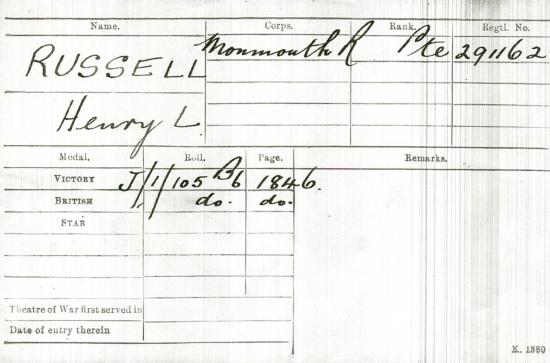 Name. Corps. Rank. Regtl. No.
RUSSELL Monmouth R Pte 291162
Henry L.
Medal. Roll. Page. Remarks.
VICTORY J/1/105 B6 1846.
BRITISH do. do.
STAR
Theatre of War first served in
Date of entry therein
K. 1380